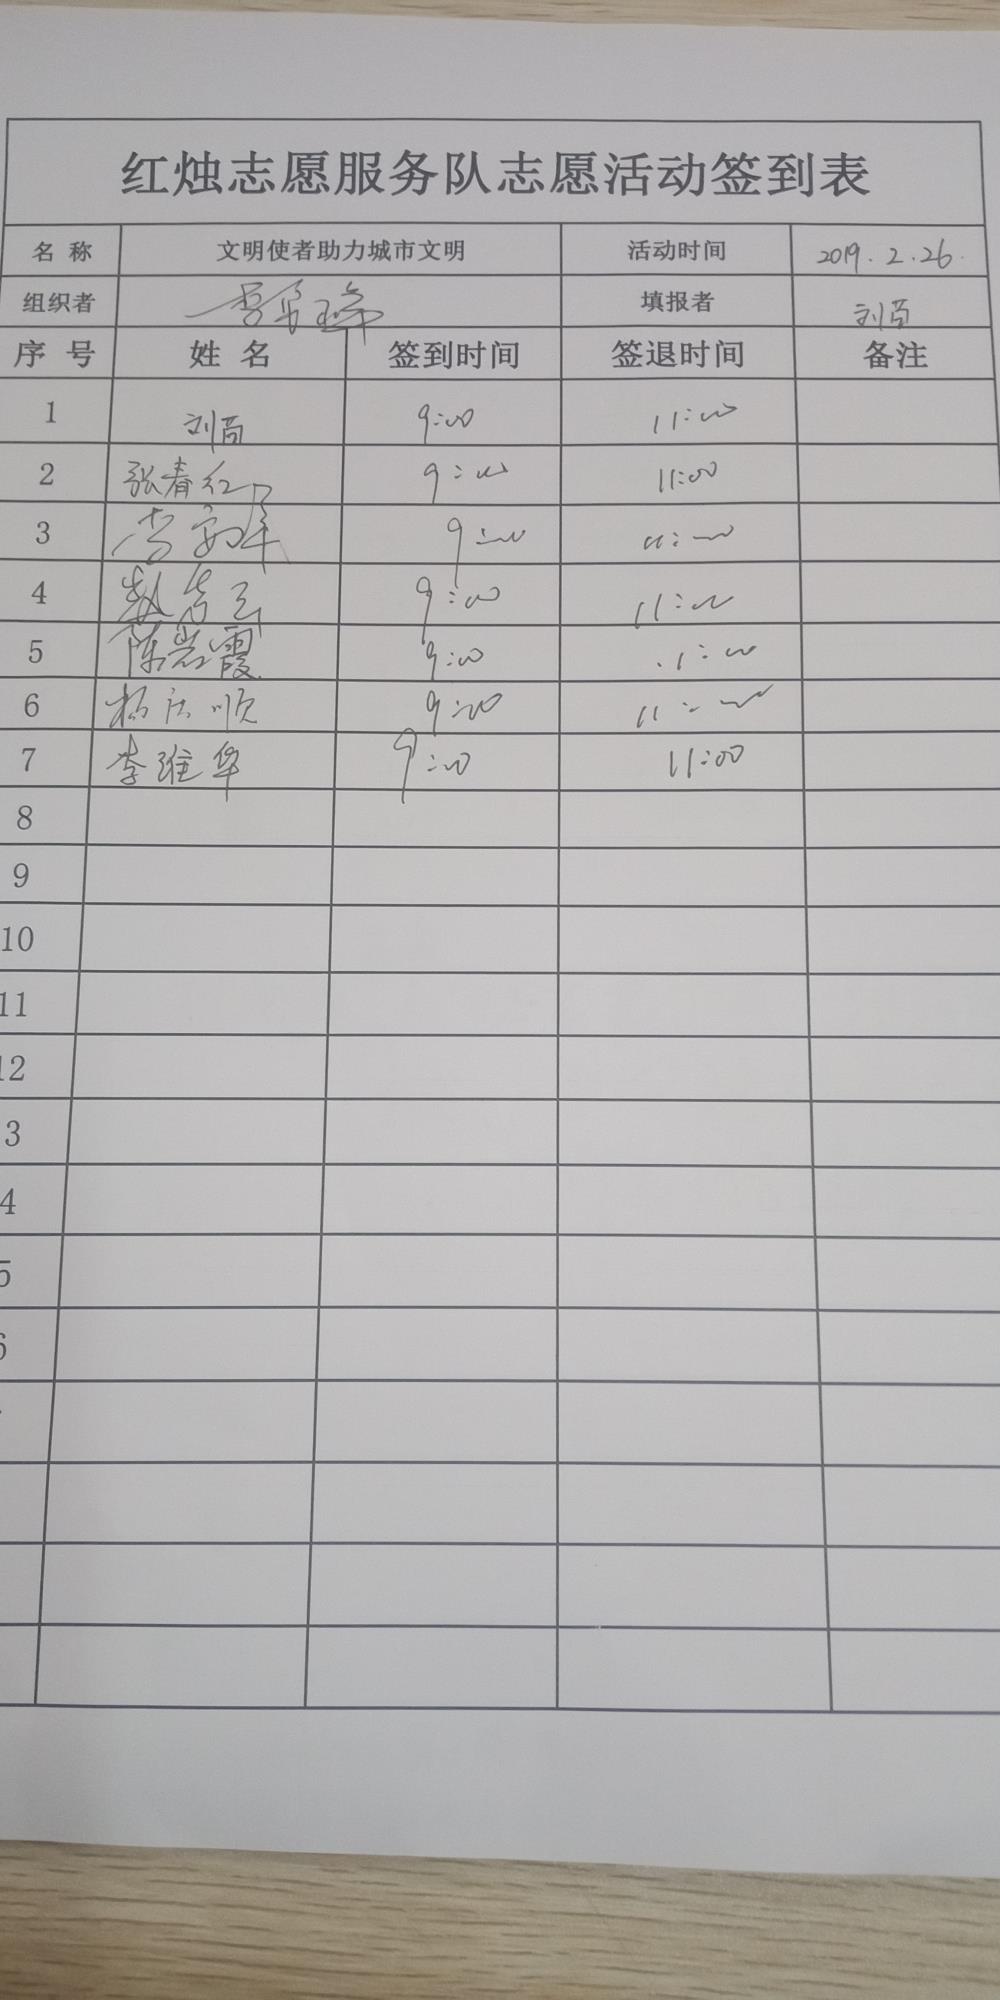 红烛志愿服务队志愿活动签到表
名 称 文明使者助力城市文明 活动时间 2019.2.26.
组织者 填报者 刘苗
序 号 姓 名 签到时间 签退时间 备注
1 刘苗 9:00 11:00
2 张春红 9:00 11:00
3 9:00 11:00
4 9:00 11:00
5 陈岩霞 9:00 11:00
6 顺 9:00 11:00
7 李维华 9:00 11:00
8
9
10
11
12
3
4
5
6